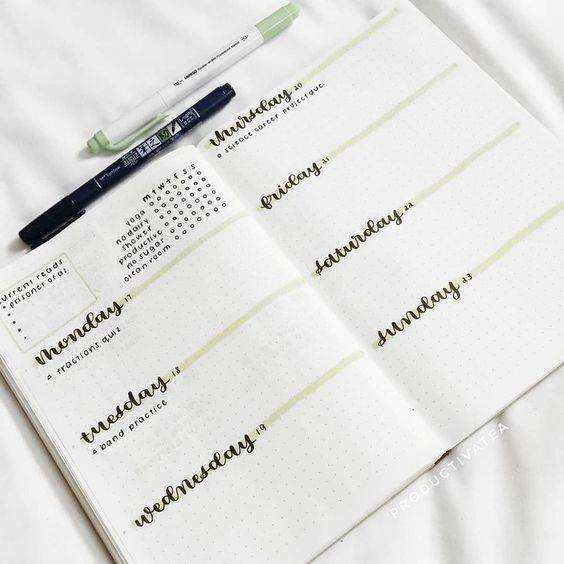 MINISO Double-ended Fluorescent Marker
Tombow
current reads
prisoner of az.
m t w t f s s
yoga
no dairy
shower
productive
no sugar
clean room
monday 17
fractions quiz
tuesday 18
band practice
wednesday 19
thursday 20
science career project due.
friday 21
saturday 22
sunday 23
PRODUCTIVATEA